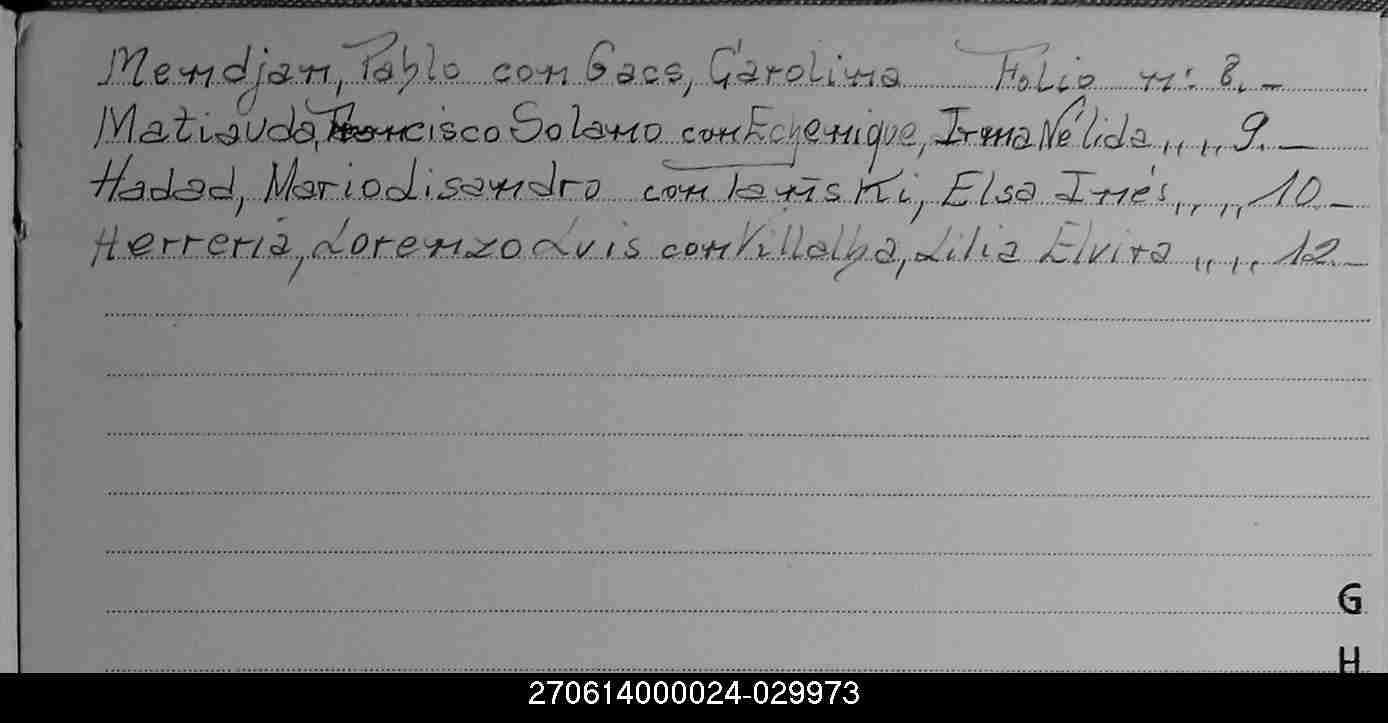 Mendjan, Pablo con Gacs, Carolina Folio n: 8. -
Matiauda, Francisco Solano con Echenique, Irma Nélida ,, ,, 9. -
Hadad, Mario Lisandro con Taniski, Elsa Inés ,, ,, 10. -
Herreria, Lorenzo Luis con Villalba, Lilia Elvira ,, ,, 12. -
G
H
270614000024-029973